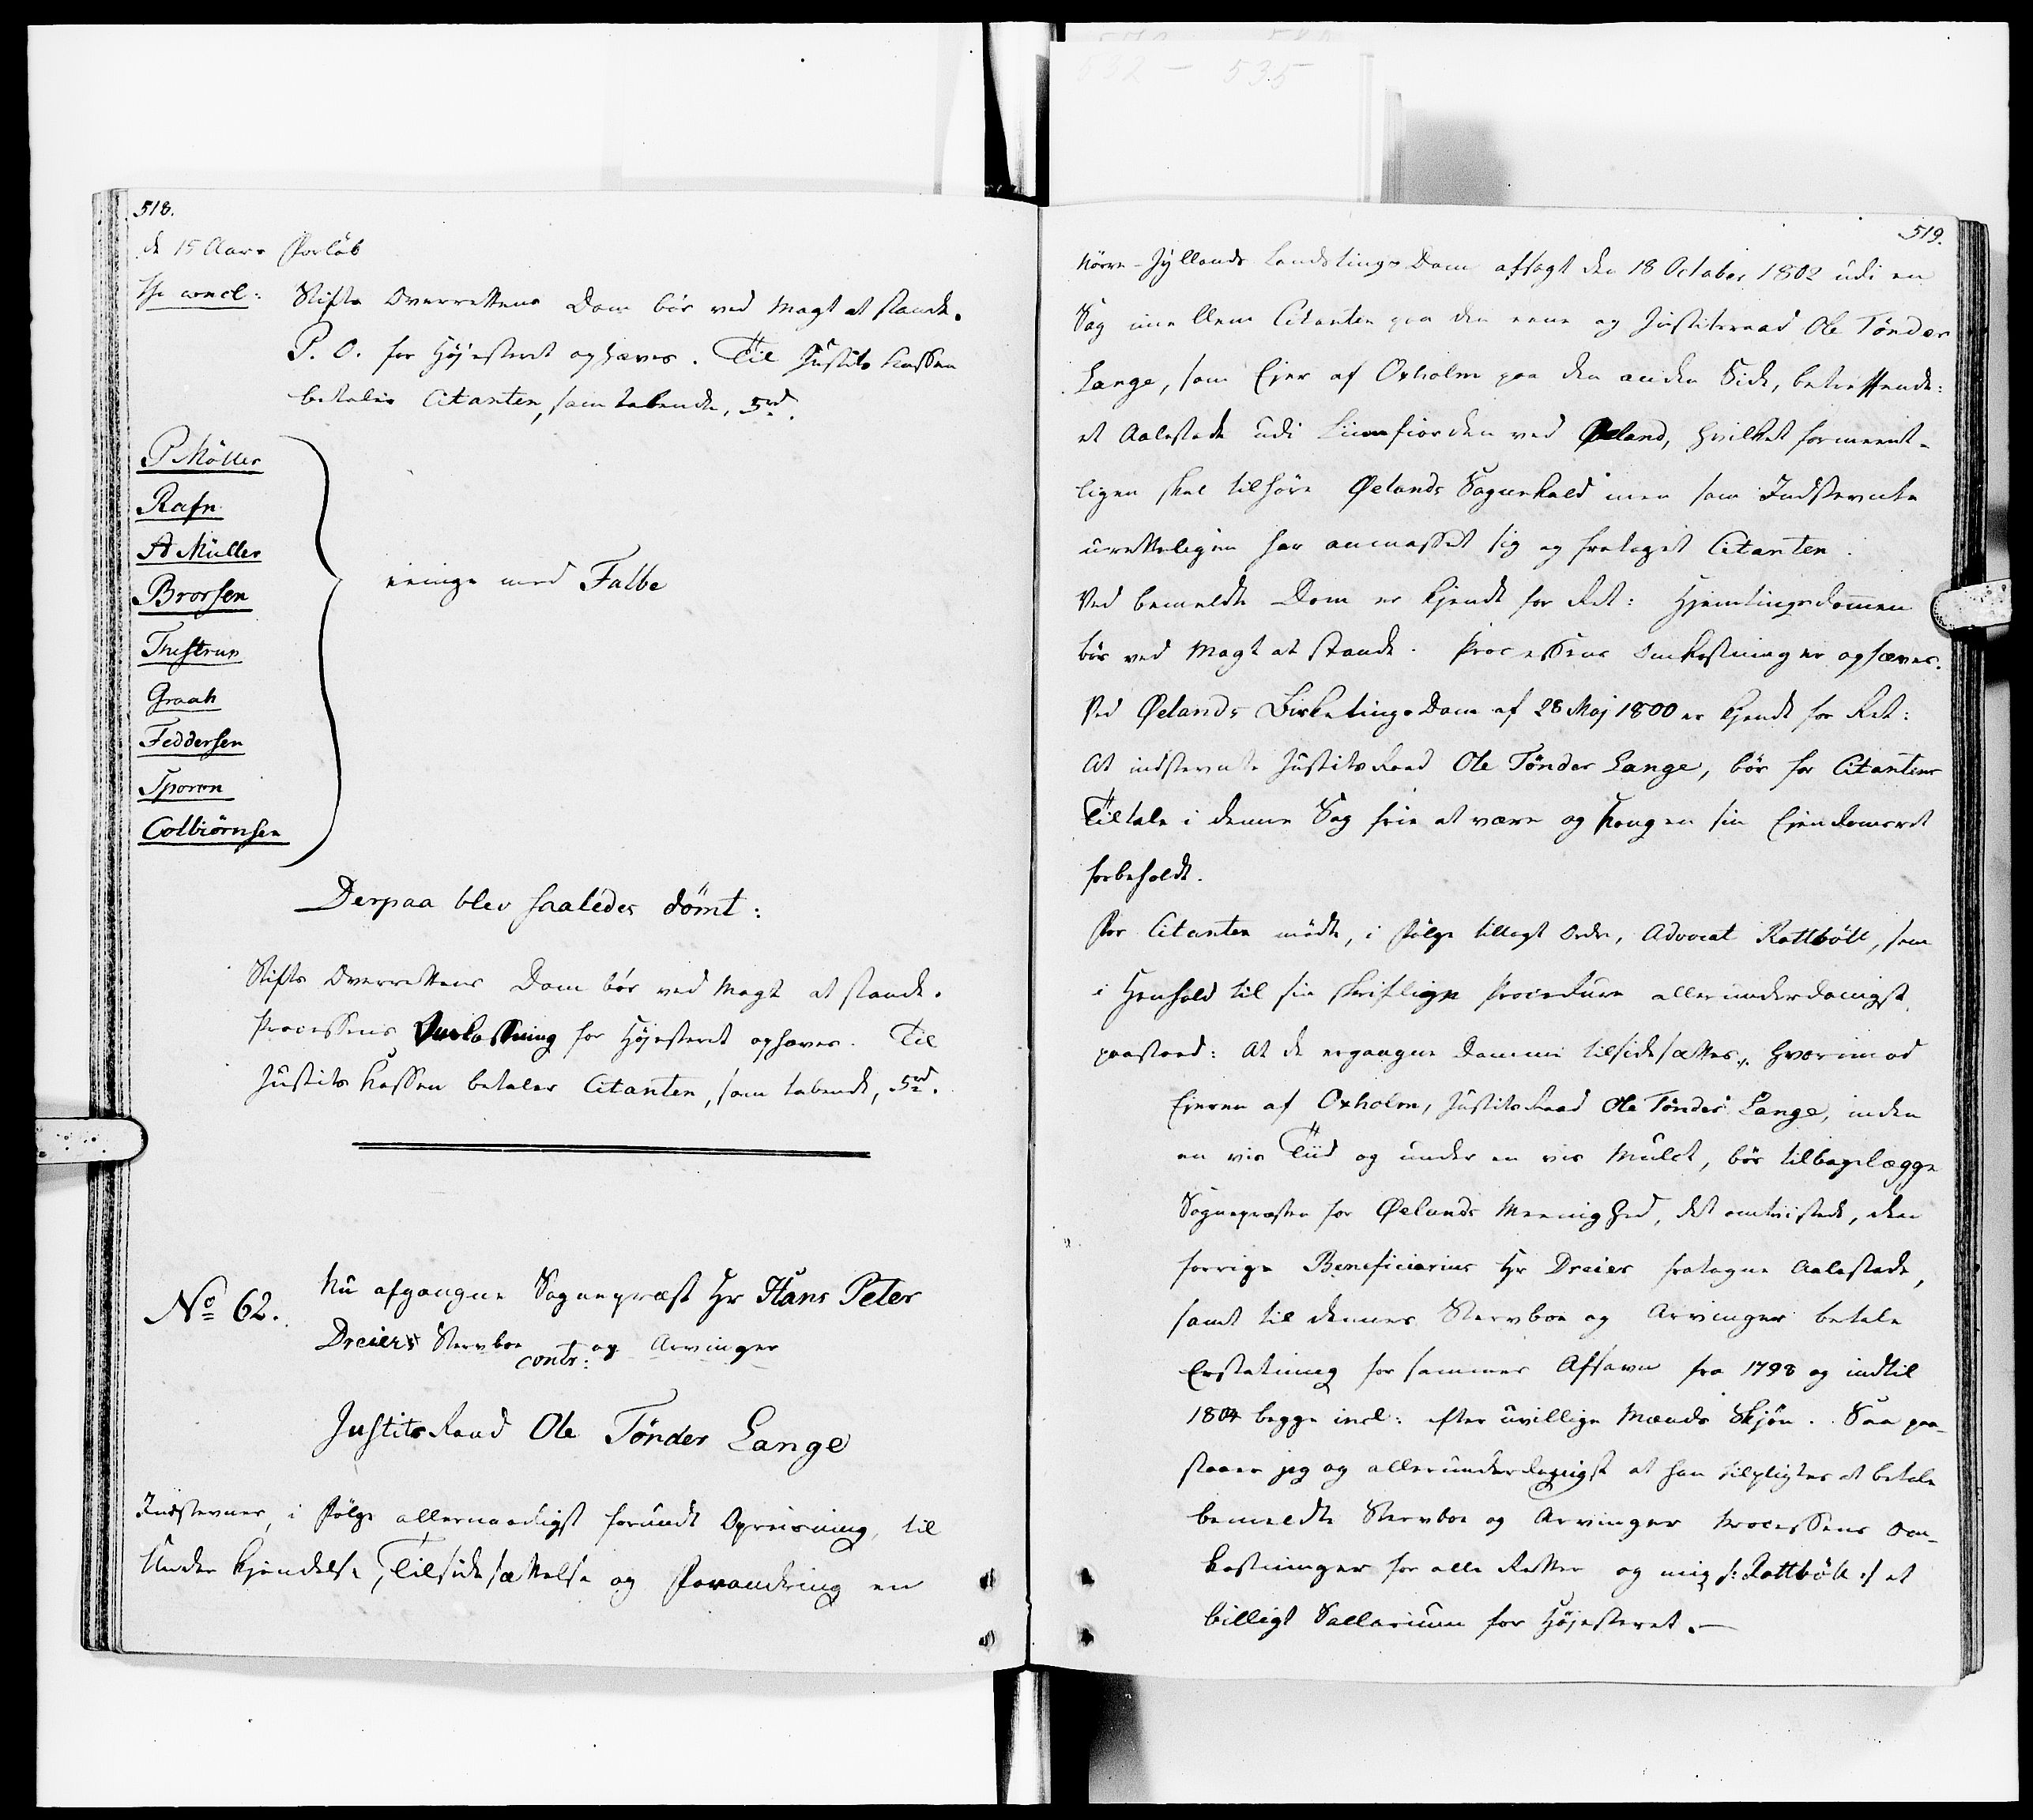 518.
de 15 Aars Forløb
the concl: Stifts Overrettens Dom bør ved Magt at stande.
P. O. for Højesteret ophæves. Til Justits Kassen
betaler Citanten, som tabende, 5rd.
P Möller
Rafn
A Müller
Brorsen
eenige med Falbe
Thestrup
Graah
Feddersen
Sporon
Colbiörnsen
Derpaa blev saaledes dömt:
Stifts Overrettens Dom bør ved Magt at stande.
Processens Omkostning for Højesteret ophæves. Til
Justits Kassen betaler Citanten, som tabende, 5rd.
No 62.
Nu afgangne Sognepræst Hr Hans Peter
Dreiers Stervboe og Arvinger
contr:
Justits Raad Ole Tönder Lange
Indstevner, i Følge allernaadigst forundt Opreisning, til
Under Kjendelse, Tilsidesættelse og Forandring en
532 - 535
519.
Nörre-Jyllands Landstings Dom afsagt den 18 October 1802 udi en
Sag imellem Citanten paa den eene og Justitsraad Ole Tönder
Lange, som Ejer af Oxholm paa den anden Side, betreffende:
et Aalestade udi Liimfiorden ved Øeland, hvilket formeent-
ligen skal tilhøre Øelands Sognekald men som Indstevnte
uretteligen har anmasset sig og frataget Citanten.
Ved bemeldte Dom er kjendt for Ret: Hjemtingsdommen
bør ved Magt at stande. Processens Omkostninger ophæves.
Ved Øelands Birketings Dom af 28 Maj 1800 er kjendt for Ret:
At indstevnte Justits Raad Ole Tönder Lange, bör for Citantens
Tiltale i denne Sag frie at være og Kongen sin Ejendomsret
forbeholdt.
For Citanten mødte, i Følge tillagt Ordre, Advocat Rottböll, som
i Henhold til sin skriftlige Procedure allerunderdanigst
paastod: At de ergangne Domme tilsidesættes, hvorimod
Ejeren af Oxholm, Justits Raad Ole Tönder Lange, inden
en vis Tiid og under en vis Mulct, bör tilbagelægge
Sognepræsten for Øelands Meenighed, det omtvistede, den
forrige Beneficiarius Hr Dreier fratagne Aalestade,
samt til dennes Stervboe og Arvinger betale
Erstatning for sammes Afsavn fra 1798 og indtil
1804 begge incl: efter uvillige Mænds Skjøn. Saa paa-
staaer jeg og allerunderdanigst at han tilpligtes at betale
bemeldte Stervboe og Arvinger Processens Om-
kostninger for alle Retter og mig /: Rottböll :/ et
billigt Sallarium for Højesteret. —